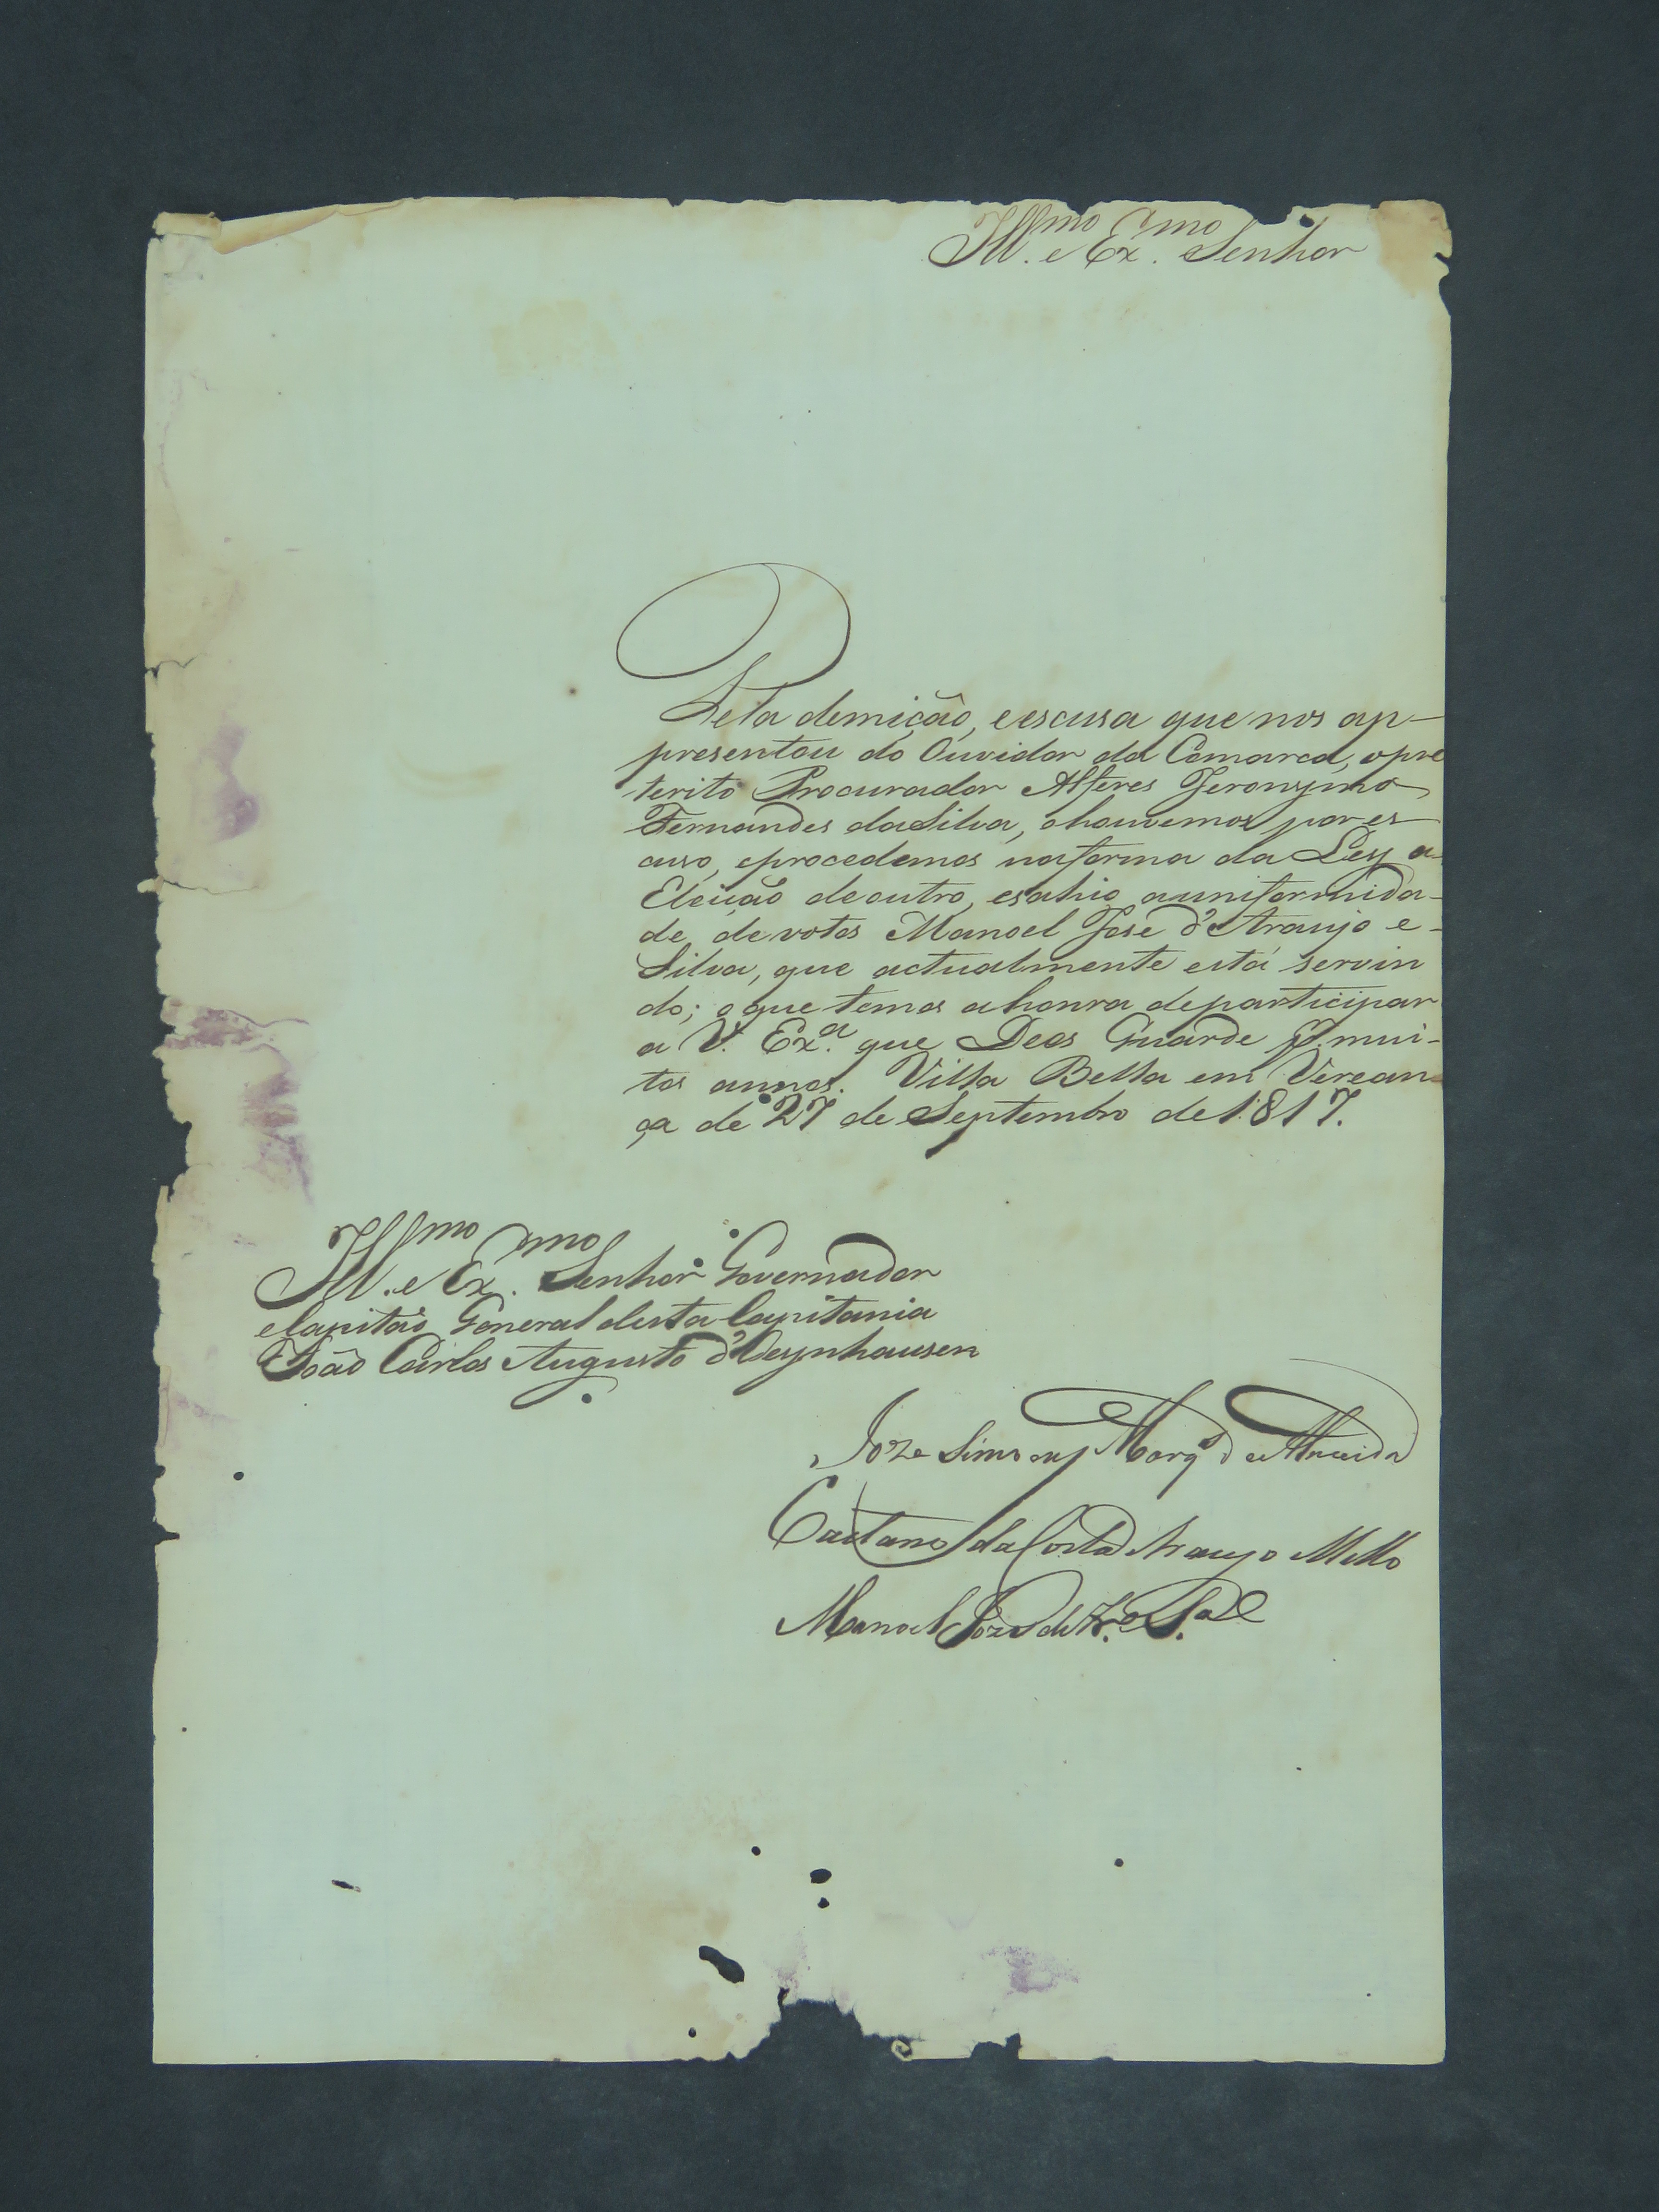 Ill.mo e Ex.mo Senhor
Pela demição, e escusa que nos ap-
presentou do Ouvidor da Comarca, o pre
terito Procurador Alferes Jeronymo
Fernandes da Silva, o houvemos por es
cuso, e procedemos na forma da Ley a
Eleição de outro, e sahio a uniformida-
de de votos Manoel José d'Araujo e
Silva, que actualmente está servin
do; o que temos a honra de participar
a V. Ex.a que Deos Guarde p. mui-
tos annos. Villa Bella em Verean=
ça de 27 de Septembro de 1817.
Ill.mo e Ex.mo Senhor Governador
e Capitão General desta Capitania
João Carlos Augusto d'Oeynhausen
Joze de Almeida
Caetano da Costa Araujo Mello
Manoel Joze de Ar.o S.a